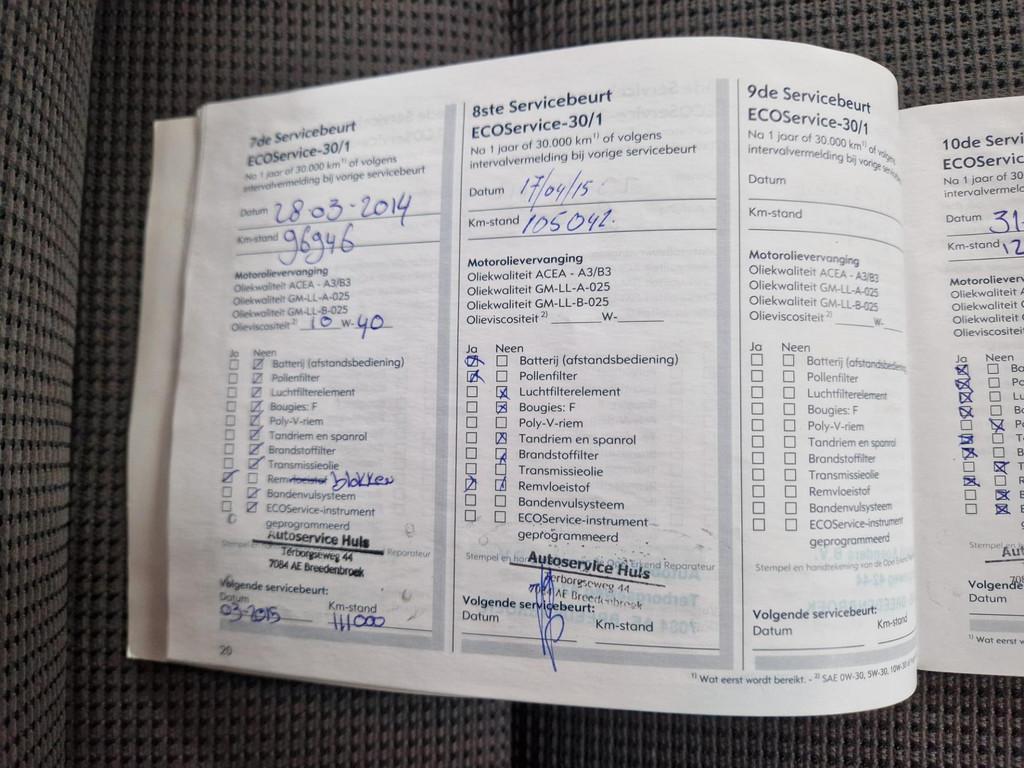 7de Servicebeurt
ECOService-30/1
Na 1 jaar of 30.000 km¹⁾ of volgens
intervalvermelding bij vorige servicebeurt
Datum 28-03-2014
Km-stand 96946
Motorolievervanging
Oliekwaliteit ACEA - A3/B3
Oliekwaliteit GM-LL-A-025
Oliekwaliteit GM-LL-B-025
Olieviscositeit ²⁾ 10 W-40
Ja Neen
Batterij (afstandsbediening)
Pollenfilter
Luchtfilterelement
Bougies: F
Poly-V-riem
Tandriem en spanrol
Brandstoffilter
Transmissieolie
Remvloeistof blokken
Bandenvulsysteem
ECOService-instrument
geprogrammeerd
Autoservice Huls
Stempel en Reparateur
Terborgseweg 44
7084 AE Breedenbroek
Volgende servicebeurt:
Datum Km-stand
03-2015 111000
20
8ste Servicebeurt
ECOService-30/1
Na 1 jaar of 30.000 km¹⁾ of volgens
intervalvermelding bij vorige servicebeurt
Datum 17/04/15
Km-stand 105042.
Motorolievervanging
Oliekwaliteit ACEA - A3/B3
Oliekwaliteit GM-LL-A-025
Oliekwaliteit GM-LL-B-025
Olieviscositeit ²⁾ W-
Ja Neen
Batterij (afstandsbediening)
Pollenfilter
Luchtfilterelement
Bougies: F
Poly-V-riem
Tandriem en spanrol
Brandstoffilter
Transmissieolie
Remvloeistof
Bandenvulsysteem
ECOService-instrument
geprogrammeerd
Autoservice Huls
Stempel en Erkend Reparateur
Terborgseweg 44
7084 AE Breedenbroek
Volgende servicebeurt:
Datum Km-stand
9de Servicebeurt
ECOService-30/1
Na 1 jaar of 30.000 km¹⁾ of volgens
intervalvermelding bij vorige
Datum
Km-stand
Motorolievervanging
Oliekwaliteit ACEA - A3/B3
Oliekwaliteit GM-LL-A-025
Oliekwaliteit GM-LL-B-025
Olieviscositeit ²⁾ W-
Ja Neen
Batterij (afstandsbediening
Pollenfilter
Luchtfilterelement
Bougies: F
Poly-V-riem
Tandriem en spanrol
Brandstoffilter
Transmissieolie
Remvloeistof
Bandenvulsysteem
ECOService-instrument
geprogrammeerd
Stempel en handtekening van de Opel
Volgende servicebeurt:
Datum Km-stand
¹⁾ Wat eerst wordt bereikt. - ²⁾ SAE 0W-30, 5W-30, 10W-30
10de Servi
ECOServic
Na 1 jaar of 30
intervalvermeld
Datum 31
Km-stand 12
Motorolieverv
Oliekwaliteit A
Oliekwaliteit
Oliekwaliteit
Olieviscositeit
Ja Neen
Stempel en
Aut
Volgende
Datum
¹⁾ Wat eerst w